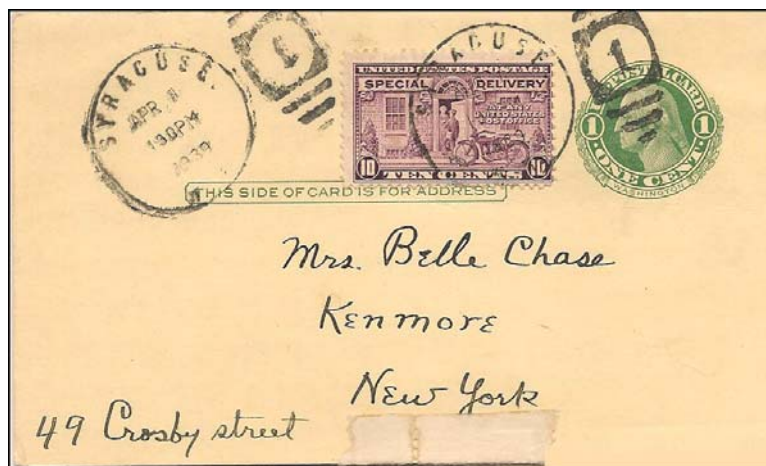 SYRACUSE.
APR 8
130PM
1939
1
SYRACUSE
1
UNITED STATES POSTAGE
SPECIAL DELIVERY
AT ANY
UNITED STATES
POST OFFICE
10 TEN CENTS 10
U.S. POSTAL CARD
1 1
ONE CENT
WASHINGTON
THIS SIDE OF CARD IS FOR ADDRESS
Mrs. Belle Chase
Kenmore
New York
49 Crosby street